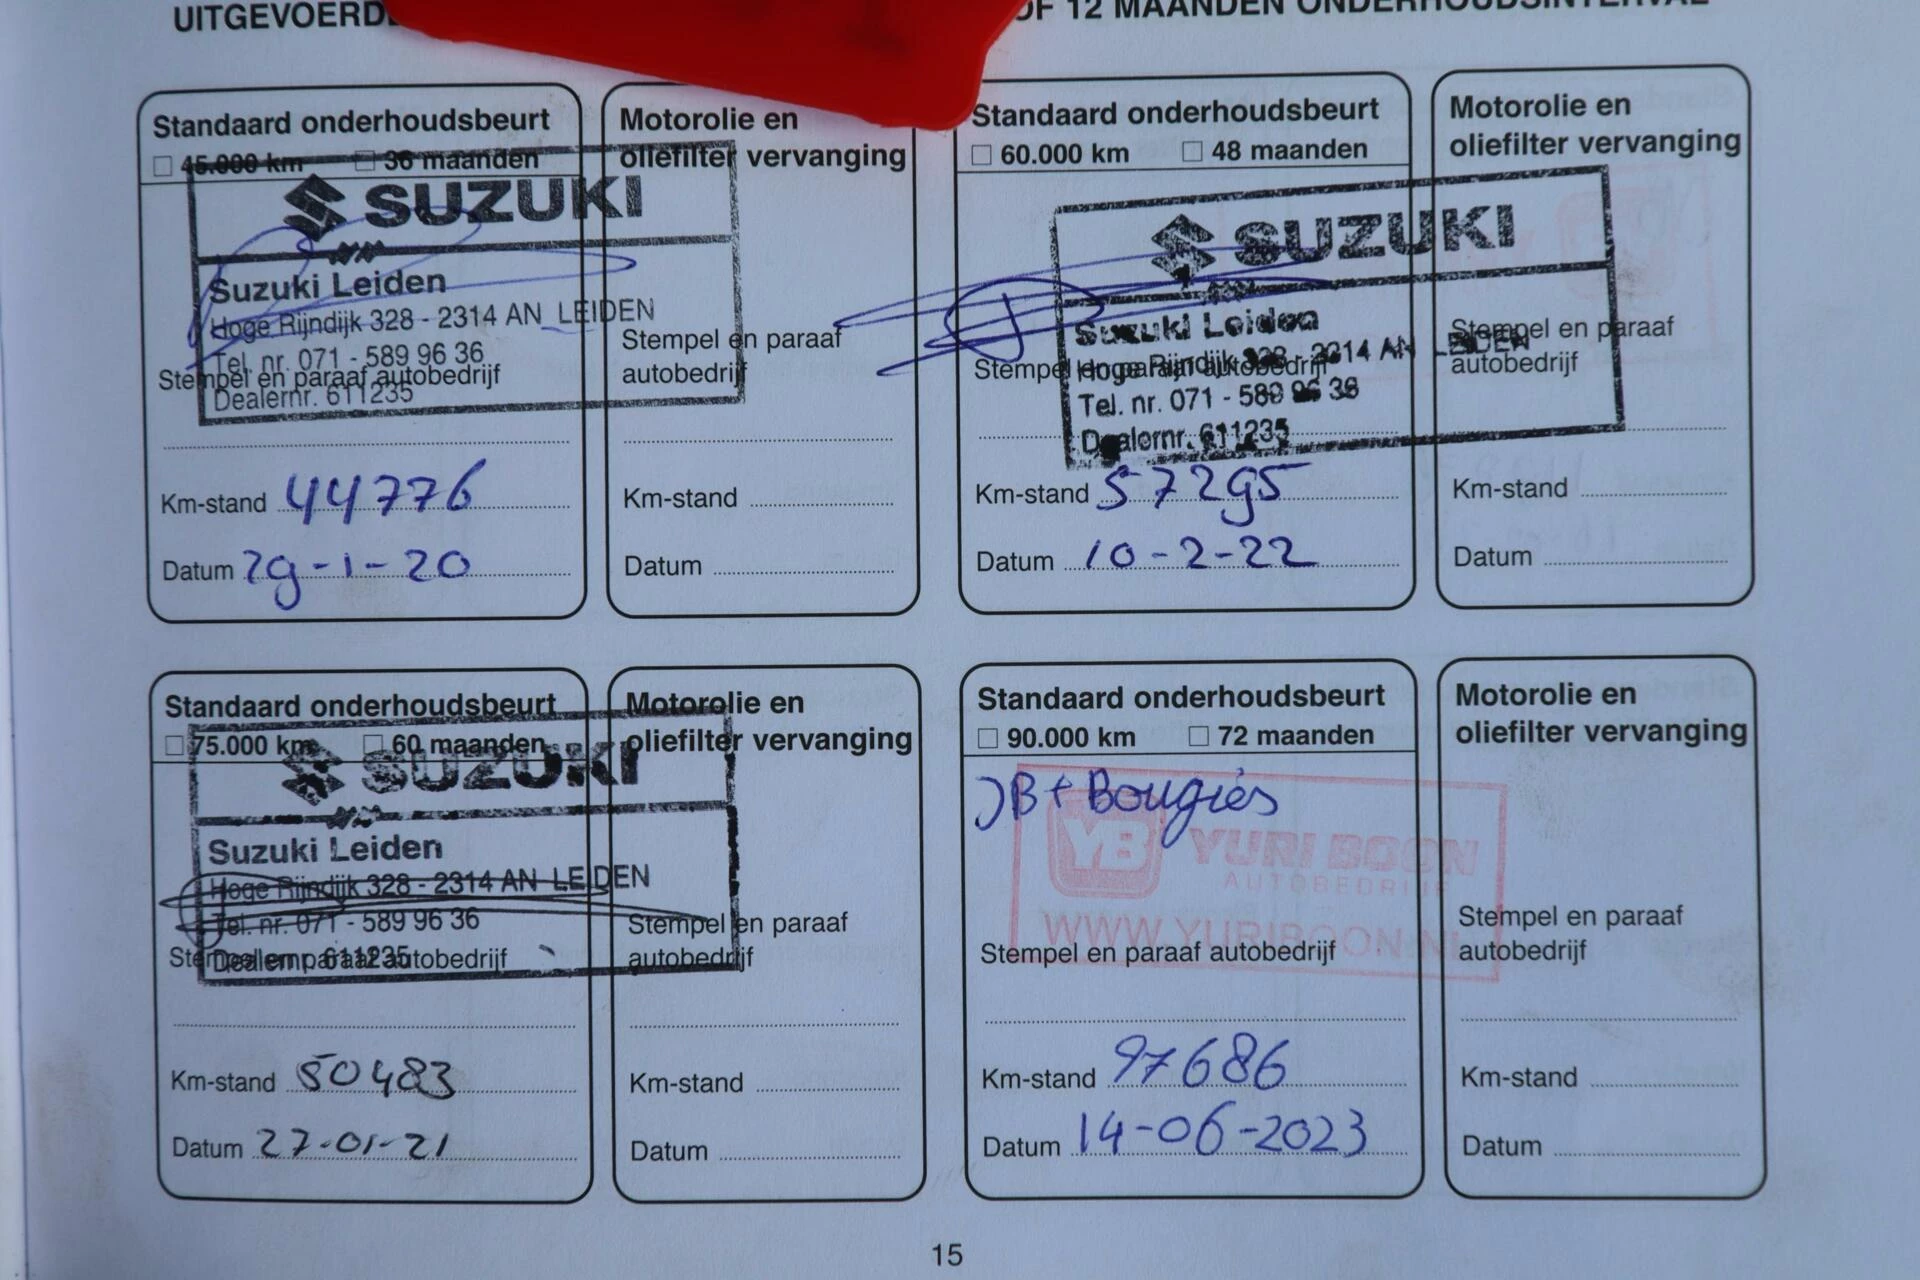 OF 12 MAANDEN ONDERHOUDSINTERVAL
Standaard onderhoudsbeurt
45.000 km 36 maanden
SUZUKI
Suzuki Leiden
Hoge Rijndijk 328 - 2314 AN LEIDEN
Tel. nr. 071 - 589 96 36
Stempel en paraaf autobedrijf
Dealernr. 611235
Km-stand 44776
Datum 29-1-20
Motorolie en
oliefilter vervanging
Stempel en paraaf
autobedrijf
Km-stand
Datum
Standaard onderhoudsbeurt
60.000 km 48 maanden
SUZUKI
Suzuki Leiden
Hoge Rijndijk 328 - 2314 AN LEIDEN
Stempel en paraaf autobedrijf
Tel. nr. 071 - 589 96 36
Dealernr. 611235
Km-stand 57295
Datum 10-2-22
Motorolie en
oliefilter vervanging
Stempel en paraaf
autobedrijf
Km-stand
Datum
Standaard onderhoudsbeurt
75.000 km 60 maanden
SUZUKI
Suzuki Leiden
Hoge Rijndijk 328 - 2314 AN LEIDEN
Tel. nr. 071 - 589 96 36
Stempel en paraaf autobedrijf
Dealernr. 611235
Km-stand 50483
Datum 27-01-21
Motorolie en
oliefilter vervanging
Stempel en paraaf
autobedrijf
Km-stand
Datum
Standaard onderhoudsbeurt
90.000 km 72 maanden
+ Bougies
YB YURI BOON
AUTOBEDRIJF
WWW.YURIBOON.NL
Stempel en paraaf autobedrijf
Km-stand 97686
Datum 14-06-2023
Motorolie en
oliefilter vervanging
Stempel en paraaf
autobedrijf
Km-stand
Datum
15